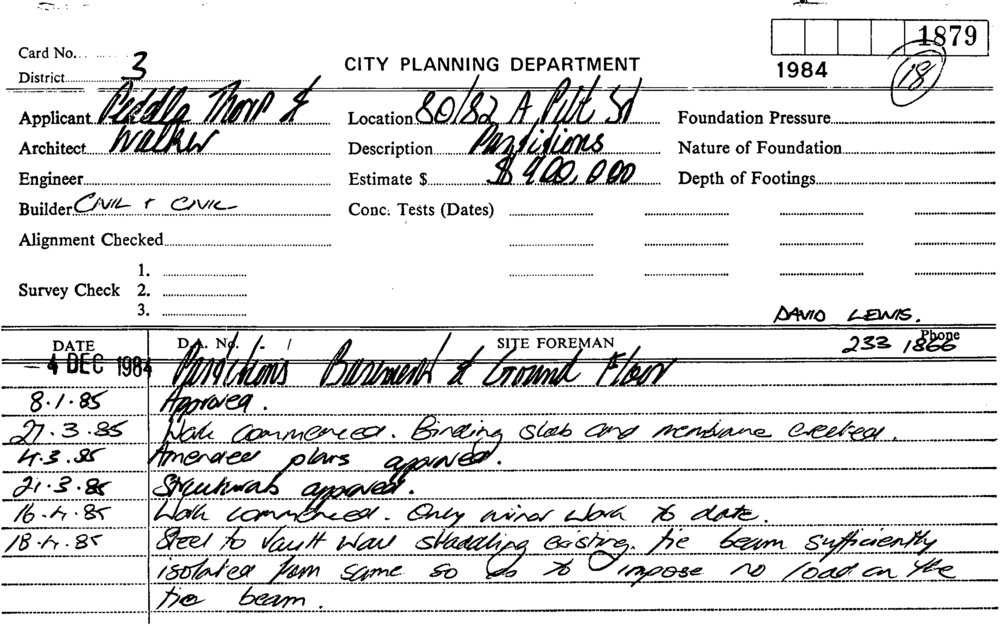 1879
Card No.
1984
18
District 3
CITY PLANNING DEPARTMENT
Applicant Peddle Thorp &
Location 80/82 A Pitt St
Foundation Pressure
Architect Walker
Description Partitions
Nature of Foundation
Engineer
Estimate $ $ 400,000
Depth of Footings
Builder CIVIL & CIVIC
Conc: Tests (Dates)
Alignment Checked
1.
Survey Check 2.
3.
DAVID LEWIS.
DATE D.A. No. SITE FOREMAN 233 1866 Phone
- 4 DEC 1984 Partitions Basement & Ground Floor
8.1.85 Approved.
27.3.85 Work commenced. Binding slab and membrane erected.
4.3.85 Amended plans approved.
21.3.85 Structurals approved.
16.4.85 Work commenced. Only minor work to date.
18.4.85 Steel to vault wall staddling existing. tie beam sufficiently
isolated from same so as to impose no load on the
tie beam.